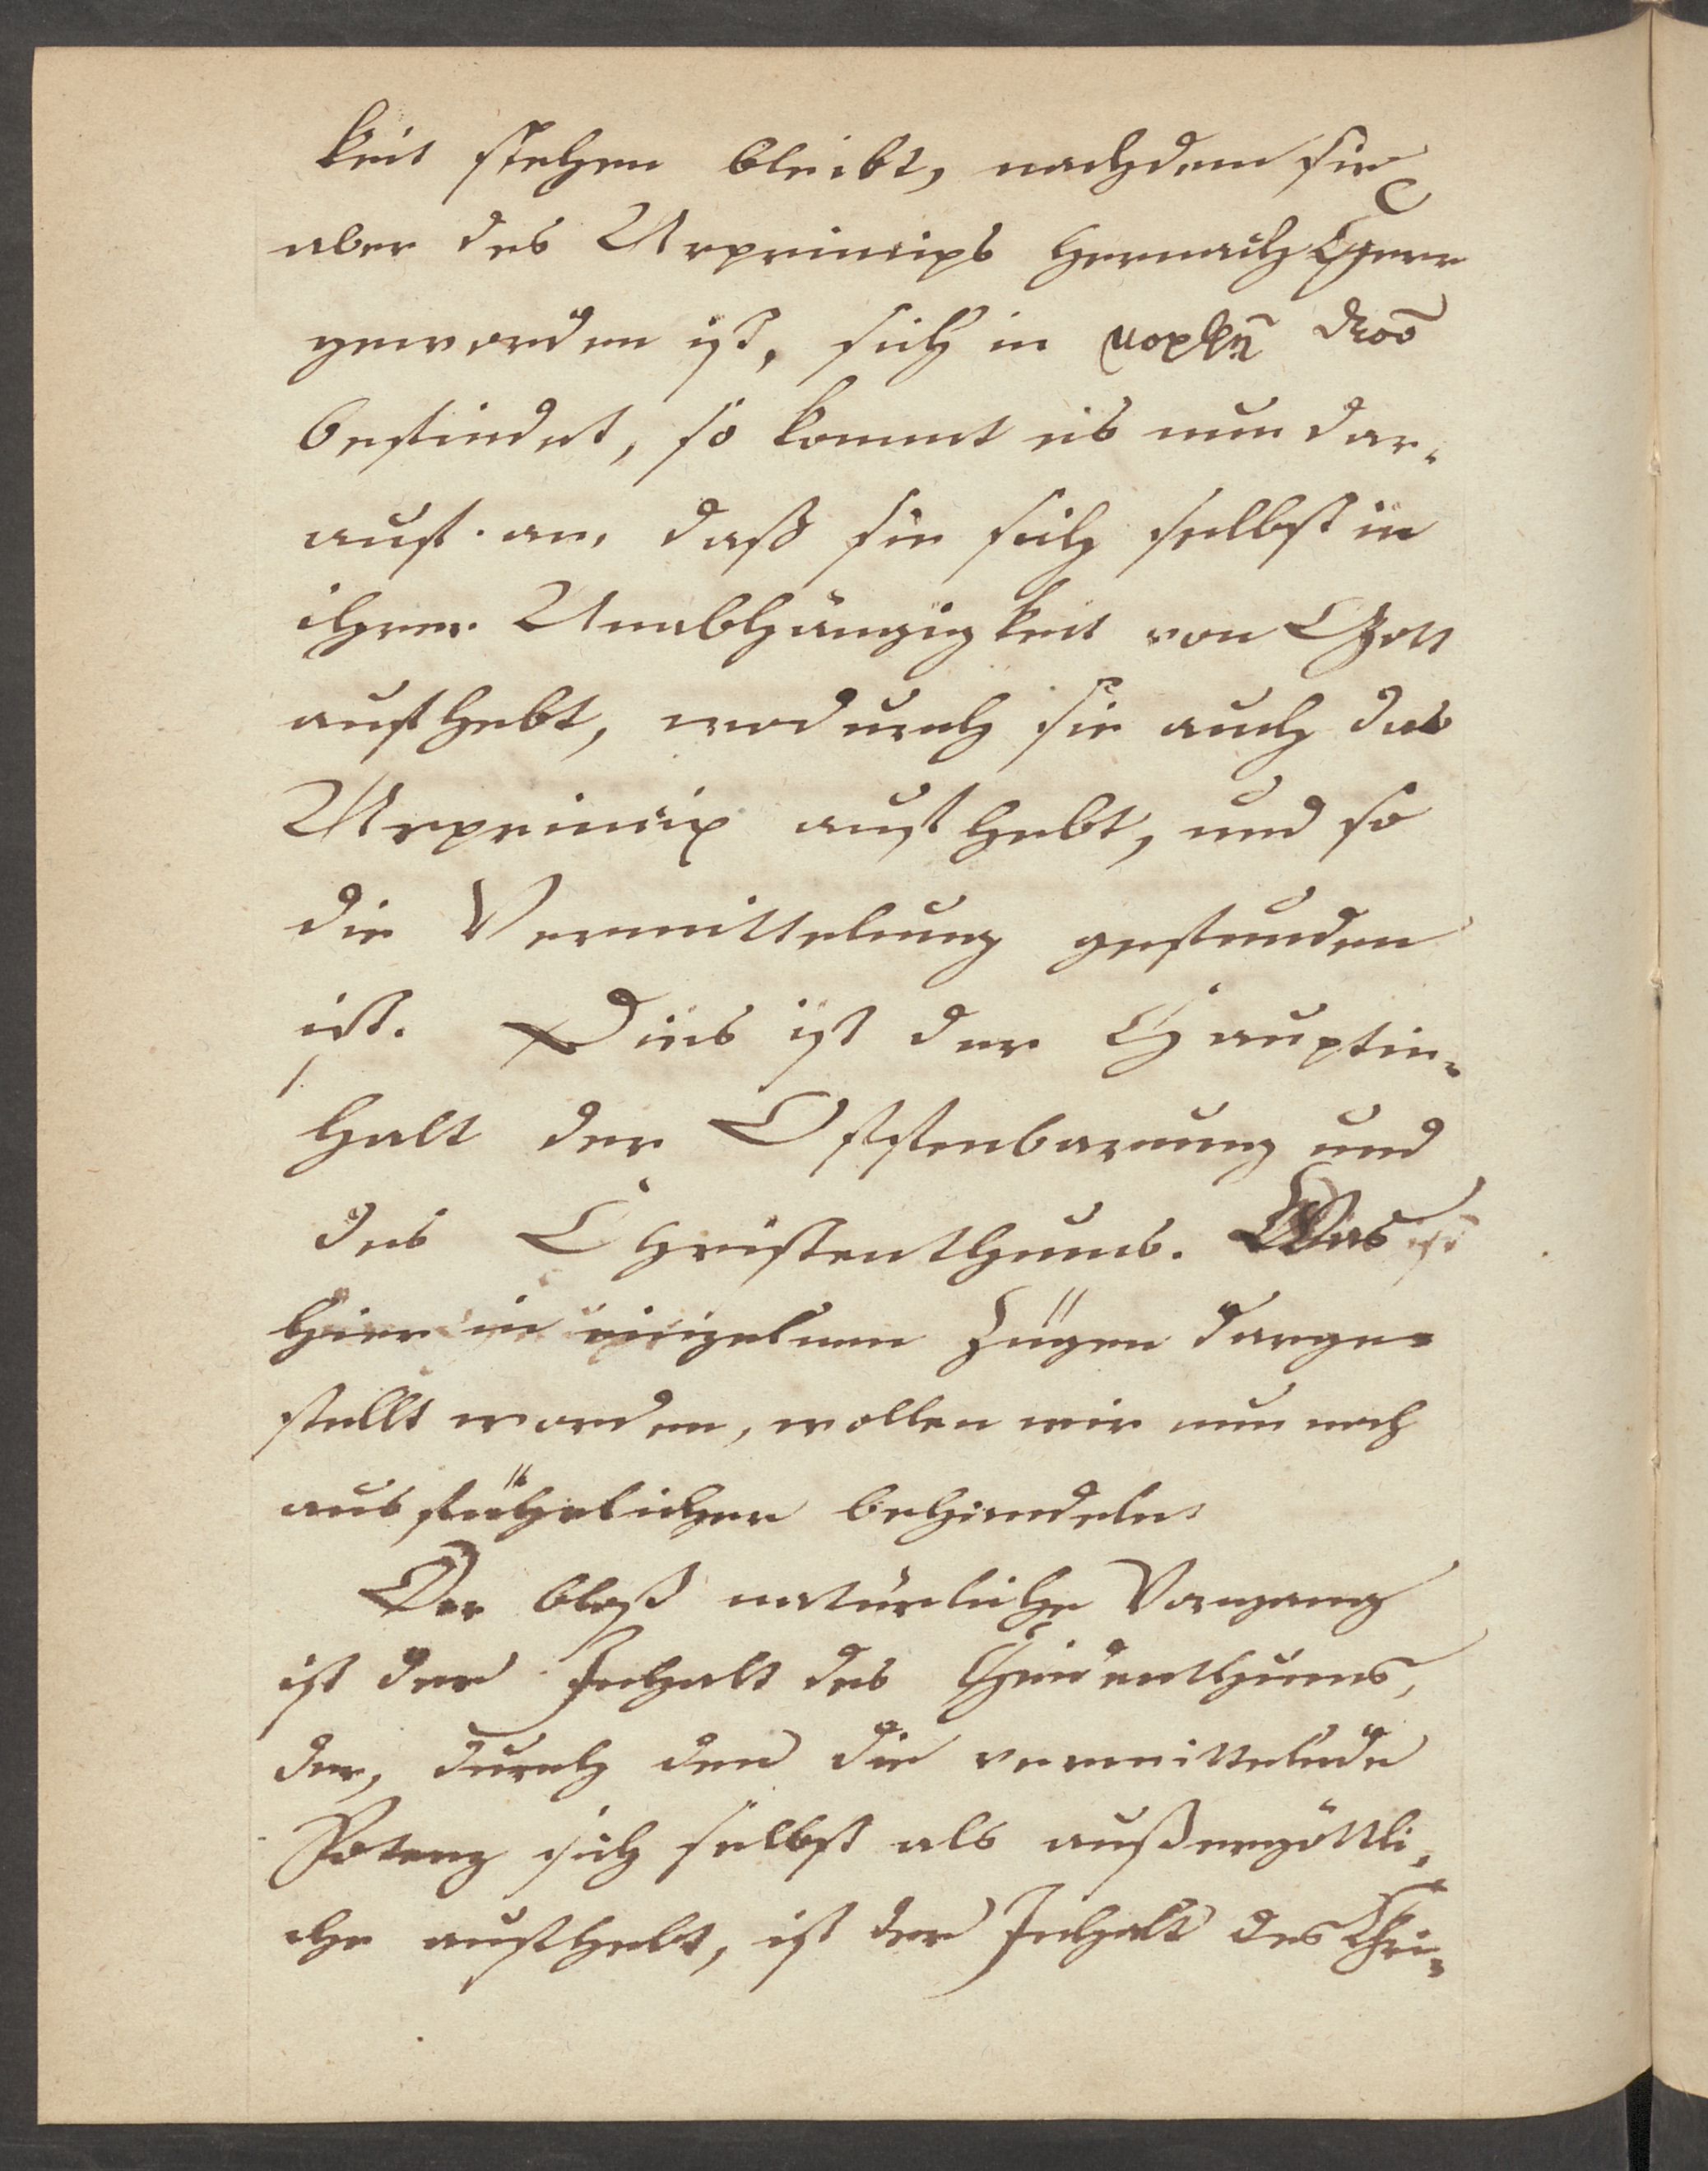 keit stehen bleibt, nachdem sie
aber des Urprincips hernach Herr
geworden ist, sich in μορφῇ θεοῦ
befindet, so kommt es nun dar-
auf an, daß sie sich selbst in
ihrer Unabhängigkeit von Gott
aufhebt, wodurch sie auch das
Urprincip aufhebt, und so
die Vermittelung gefunden
ist. Dies ist der Hauptin-
halt der Offenbarung und
des Christenthums. Was
hier in einzelnen Zügen darge-
stellt worden, wollen wir nun noch
ausführlicher behandeln.
Der bloß natürliche Vorgang
ist der Inhalt des Heidenthums,
der, durch den die vermittelnde
Potenz sich selbst als außergöttli-
che aufhebt, ist der Inhalt des Chri-